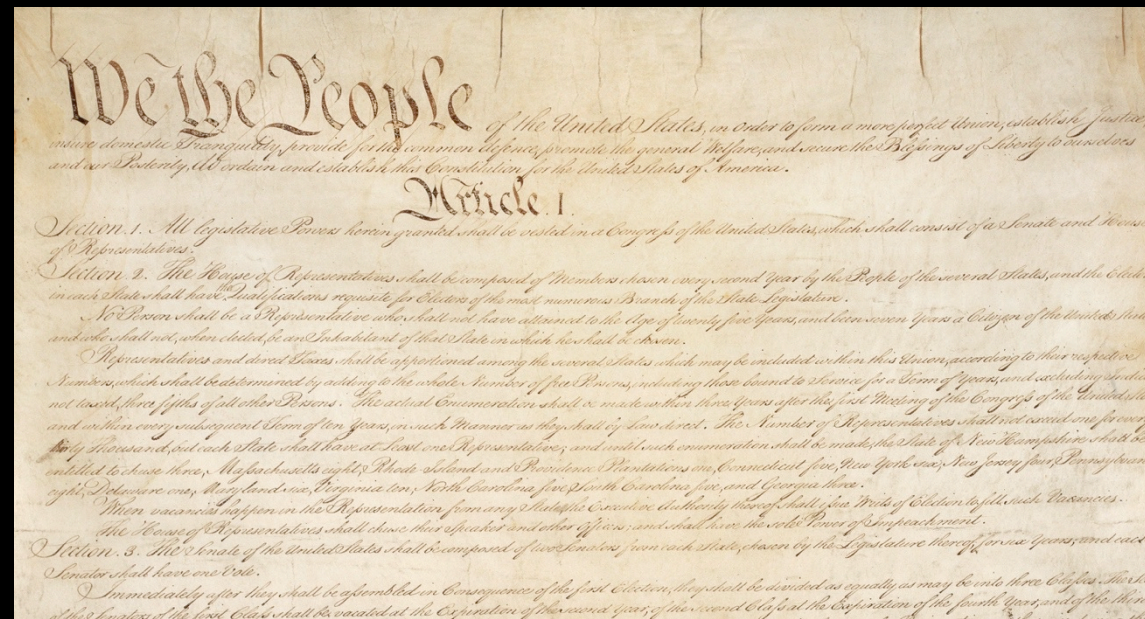 We the People of the United States, in Order to form a more perfect Union, establish Justice,
insure domestic Tranquility, provide for the common defence, promote the general Welfare, and secure the Blessings of Liberty to ourselves
and our Posterity, do ordain and establish this Constitution for the United States of America.
Article. I.
Section. 1. All legislative Powers herein granted shall be vested in a Congress of the United States, which shall consist of a Senate and House
of Representatives.
Section. 2. The House of Representatives shall be composed of Members chosen every second Year by the People of the several States, and the
in each State shall have the Qualifications requisite for Electors of the most numerous Branch of the State Legislature.
No Person shall be a Representative who shall not have attained to the Age of twenty five Years, and been seven Years a Citizen of the United
and who shall not, when elected, be an Inhabitant of that State in which he shall be chosen.
Representatives and direct Taxes shall be apportioned among the several States which may be included within this Union, according to their respective
Numbers, which shall be determined by adding to the whole Number of free Persons, including those bound to Service for a Term of Years, and excluding
not taxed, three fifths of all other Persons. The actual Enumeration shall be made within three Years after the first Meeting of the Congress of the United
and within every subsequent Term of ten Years, in such Manner as they shall by Law direct. The Number of Representatives shall not exceed one for
thirty Thousand, but each State shall have at Least one Representative; and until such enumeration shall be made, the State of New Hampshire shall
entitled to chuse three, Massachusetts eight, Rhode Island and Providence Plantations one, Connecticut five, New York six, New Jersey four,
eight, Delaware one, Maryland six, Virginia ten, North Carolina five, South Carolina five, and Georgia three.
When vacancies happen in the Representation from any State, the Executive Authority thereof shall issue Writs of Election to fill such Vacancies.
The House of Representatives shall chuse their Speaker and other Officers; and shall have the sole Power of Impeachment.
Section. 3. The Senate of the United States shall be composed of two Senators from each State, chosen by the Legislature thereof, for six Years; and each
Senator shall have one Vote.
Immediately after they shall be assembled in Consequence of the first Election, they shall be divided as equally as may be into three Classes. The
of the Senators of the first Class shall be vacated at the Expiration of the second Year, of the second Class at the Expiration of the fourth Year, and of the third